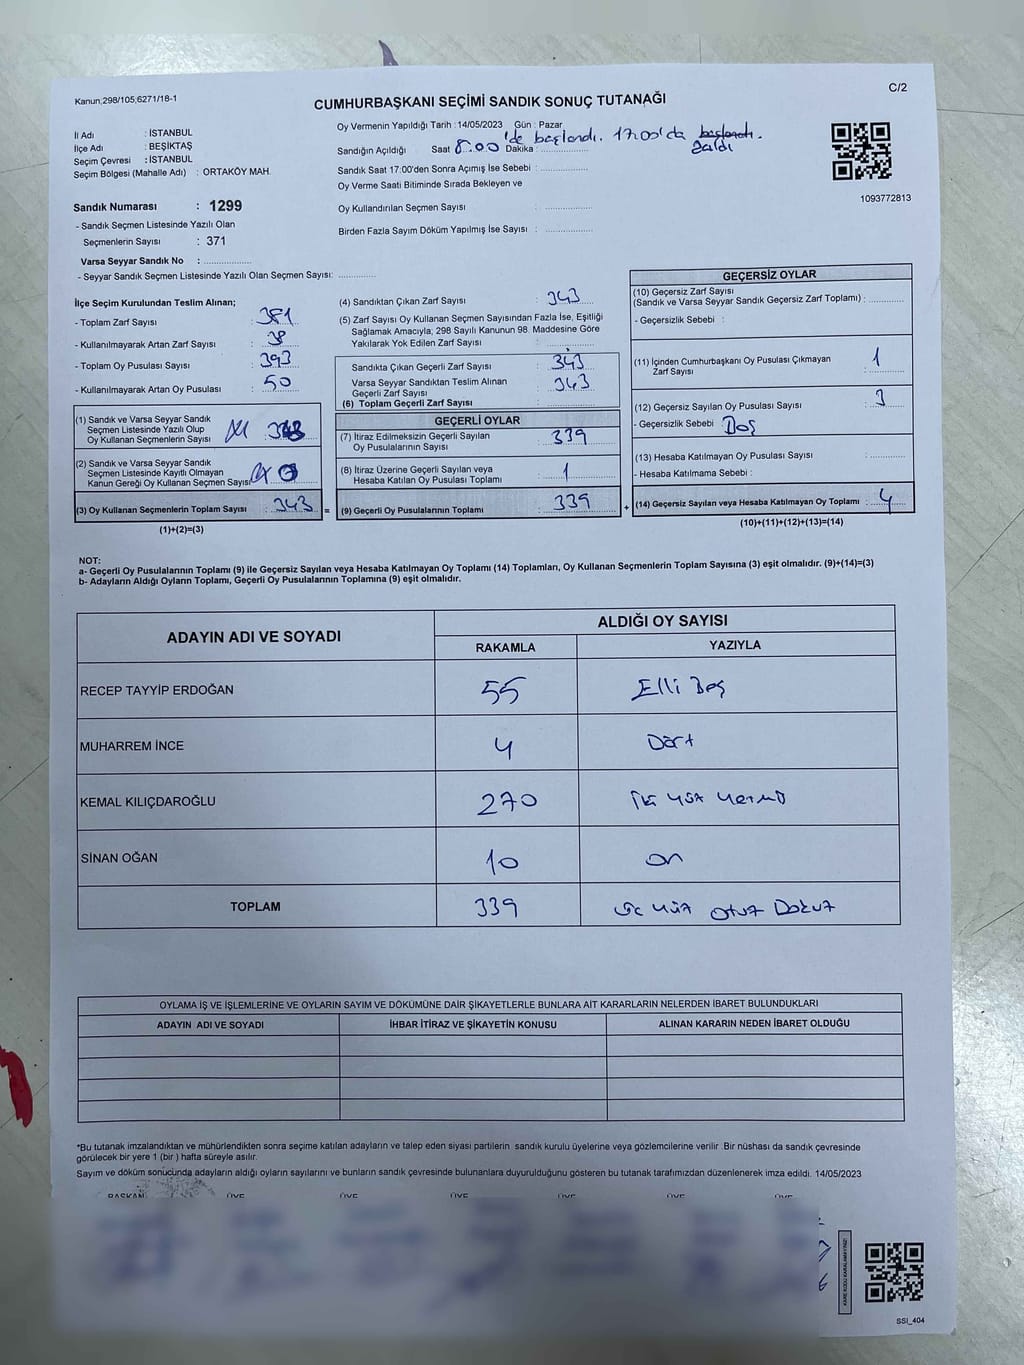 Kanun;298/105;6271/18-1
C/2
CUMHURBAŞKANI SEÇİMİ SANDIK SONUÇ TUTANAĞI
İl Adı : İSTANBUL
İlçe Adı : BEŞİKTAŞ
Seçim Çevresi : İSTANBUL
Seçim Bölgesi (Mahalle Adı) : ORTAKÖY MAH.
Sandık Numarası : 1299
- Sandık Seçmen Listesinde Yazılı Olan
Seçmenlerin Sayısı : 371
Varsa Seyyar Sandık No : ....................
- Seyyar Sandık Seçmen Listesinde Yazılı Olan Seçmen Sayısı: ...............
Oy Vermenin Yapıldığı Tarih : 14/05/2023 Gün : Pazar
Sandığın Açıldığı Saat 8.00 'de başlandı. 17:00'da başlandı. Dakika : ....................
Sandık Saat 17:00'den Sonra Açımış İse Sebebi : ....................
Oy Verme Saati Bitiminde Sırada Bekleyen ve
Oy Kullandırılan Seçmen Sayısı : ....................
Birden Fazla Sayım Döküm Yapılmış İse Sayısı : ....................
1093772813
İlçe Seçim Kurulundan Teslim Alınan;
- Toplam Zarf Sayısı : 381
- Kullanılmayarak Artan Zarf Sayısı : 38
- Toplam Oy Pusulası Sayısı : 393
- Kullanılmayarak Artan Oy Pusulası : 50
(1) Sandık ve Varsa Seyyar Sandık
Seçmen Listesinde Yazılı Olup
Oy Kullanan Seçmenlerin Sayısı : 343
(2) Sandık ve Varsa Seyyar Sandık
Seçmen Listesinde Kayıtlı Olmayan
Kanun Gereği Oy Kullanan Seçmen Sayısı 0
(3) Oy Kullanan Seçmenlerin Toplam Sayısı : 343 =
(1)+(2)=(3)
(4) Sandıktan Çıkan Zarf Sayısı : 343
(5) Zarf Sayısı Oy Kullanan Seçmen Sayısından Fazla İse, Eşitliği
Sağlamak Amacıyla; 298 Sayılı Kanunun 98. Maddesine Göre
Yakılarak Yok Edilen Zarf Sayısı : ....................
Sandıkta Çıkan Geçerli Zarf Sayısı : 343
Varsa Seyyar Sandıktan Teslim Alınan
Geçerli Zarf Sayısı : 343
(6) Toplam Geçerli Zarf Sayısı : ....................
GEÇERLİ OYLAR
(7) İtiraz Edilmeksizin Geçerli Sayılan
Oy Pusulalarının Sayısı : 339
(8) İtiraz Üzerine Geçerli Sayılan veya
Hesaba Katılan Oy Pusulası Toplamı : 1
(9) Geçerli Oy Pusulalarının Toplamı : 339 +
GEÇERSİZ OYLAR
(10) Geçersiz Zarf Sayısı
(Sandık ve Varsa Seyyar Sandık Geçersiz Zarf Toplamı) : ...........
- Geçersizlik Sebebi :
(11) İçinden Cumhurbaşkanı Oy Pusulası Çıkmayan
Zarf Sayısı : 1
(12) Geçersiz Sayılan Oy Pusulası Sayısı : 3
- Geçersizlik Sebebi : Boş
(13) Hesaba Katılmayan Oy Pusulası Sayısı : ...........
- Hesaba Katılmama Sebebi :
(14) Geçersiz Sayılan veya Hesaba Katılmayan Oy Toplamı : 4
(10)+(11)+(12)+(13)=(14)
NOT:
a- Geçerli Oy Pusulalarının Toplamı (9) ile Geçersiz Sayılan veya Hesaba Katılmayan Oy Toplamı (14) Toplamları, Oy Kullanan Seçmenlerin Toplam Sayısına (3) eşit olmalıdır. (9)+(14)=(3)
b- Adayların Aldığı Oyların Toplamı, Geçerli Oy Pusulalarının Toplamına (9) eşit olmalıdır.
ADAYIN ADI VE SOYADI
ALDIĞI OY SAYISI
RAKAMLA YAZIYLA
RECEP TAYYİP ERDOĞAN 55 Elli Beş
MUHARREM İNCE 4 Dört
KEMAL KILIÇDAROĞLU 270 İki yüz
SİNAN OĞAN 10 on
TOPLAM 339 üç yüz otuz Dokuz
OYLAMA İŞ VE İŞLEMLERİNE VE OYLARIN SAYIM VE DÖKÜMÜNE DAİR ŞİKAYETLERLE BUNLARA AİT KARARLARIN NELERDEN İBARET BULUNDUKLARI
ADAYIN ADI VE SOYADI İHBAR İTİRAZ VE ŞİKAYETİN KONUSU ALINAN KARARIN NEDEN İBARET OLDUĞU
*Bu tutanak imzalandıktan ve mühürlendikten sonra seçime katılan adayların ve talep eden siyasi partilerin sandık kurulu üyelerine veya gözlemcilerine verilir .Bir nüshası da sandık çevresinde
görülecek bir yere 1 (bir ) hafta süreyle asılır.
Sayım ve döküm sonucunda adayların aldığı oyların sayılarını ve bunların sandık çevresinde bulunanlara duyurulduğunu gösteren bu tutanak tarafımızdan düzenlenerek imza edildi. 14/05/2023
BAŞKAN ÜYE ÜYE ÜYE ÜYE ÜYE ÜYE
SSI_404